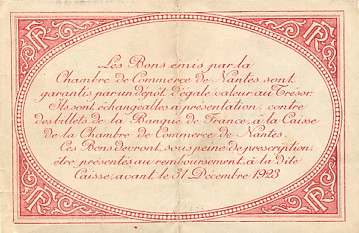 RF
RF
Les Bons émis par la
Chambre de Commerce de Nantes sont
garantis par un dépôt d'égale valeur au Trésor.
Ils sont échangeables à présentation, contre
des billets de la Banque de France, à la Caisse
de la Chambre de Commerce de Nantes.
Ces Bons devront, sous peine de prescription,
être présentés au remboursement, à la dite
Caisse, avant le 31 Décembre 1923
RF
RF